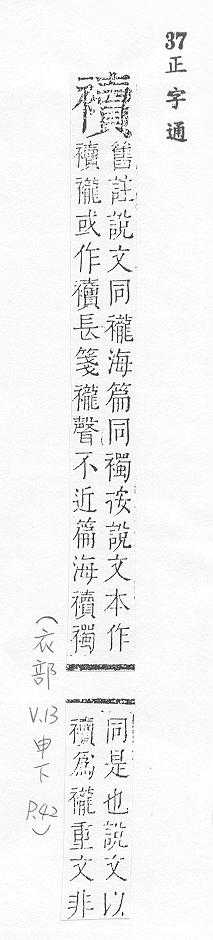 37正字通
襩
舊註說文同襱海篇同襡按說文本作
襩襱或作襩長箋襱聲不近篇海襩襡
同是也說文以
襩爲襱重文非
(衣部 V.13 申下 P.42)